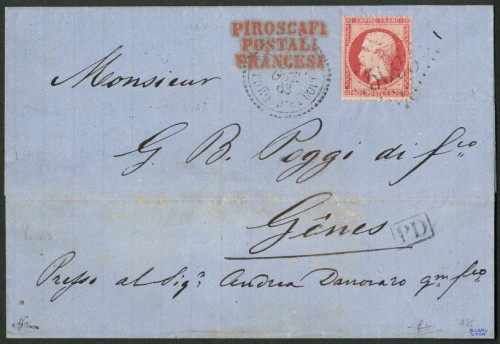 PIROSCAFI
POSTALI
FRANCESI
EMPIRE FRANC
Monsieur
G. B. Poggi di fco
Gênes
PD
Presso al Sigr Andrea Danovaro qm fco